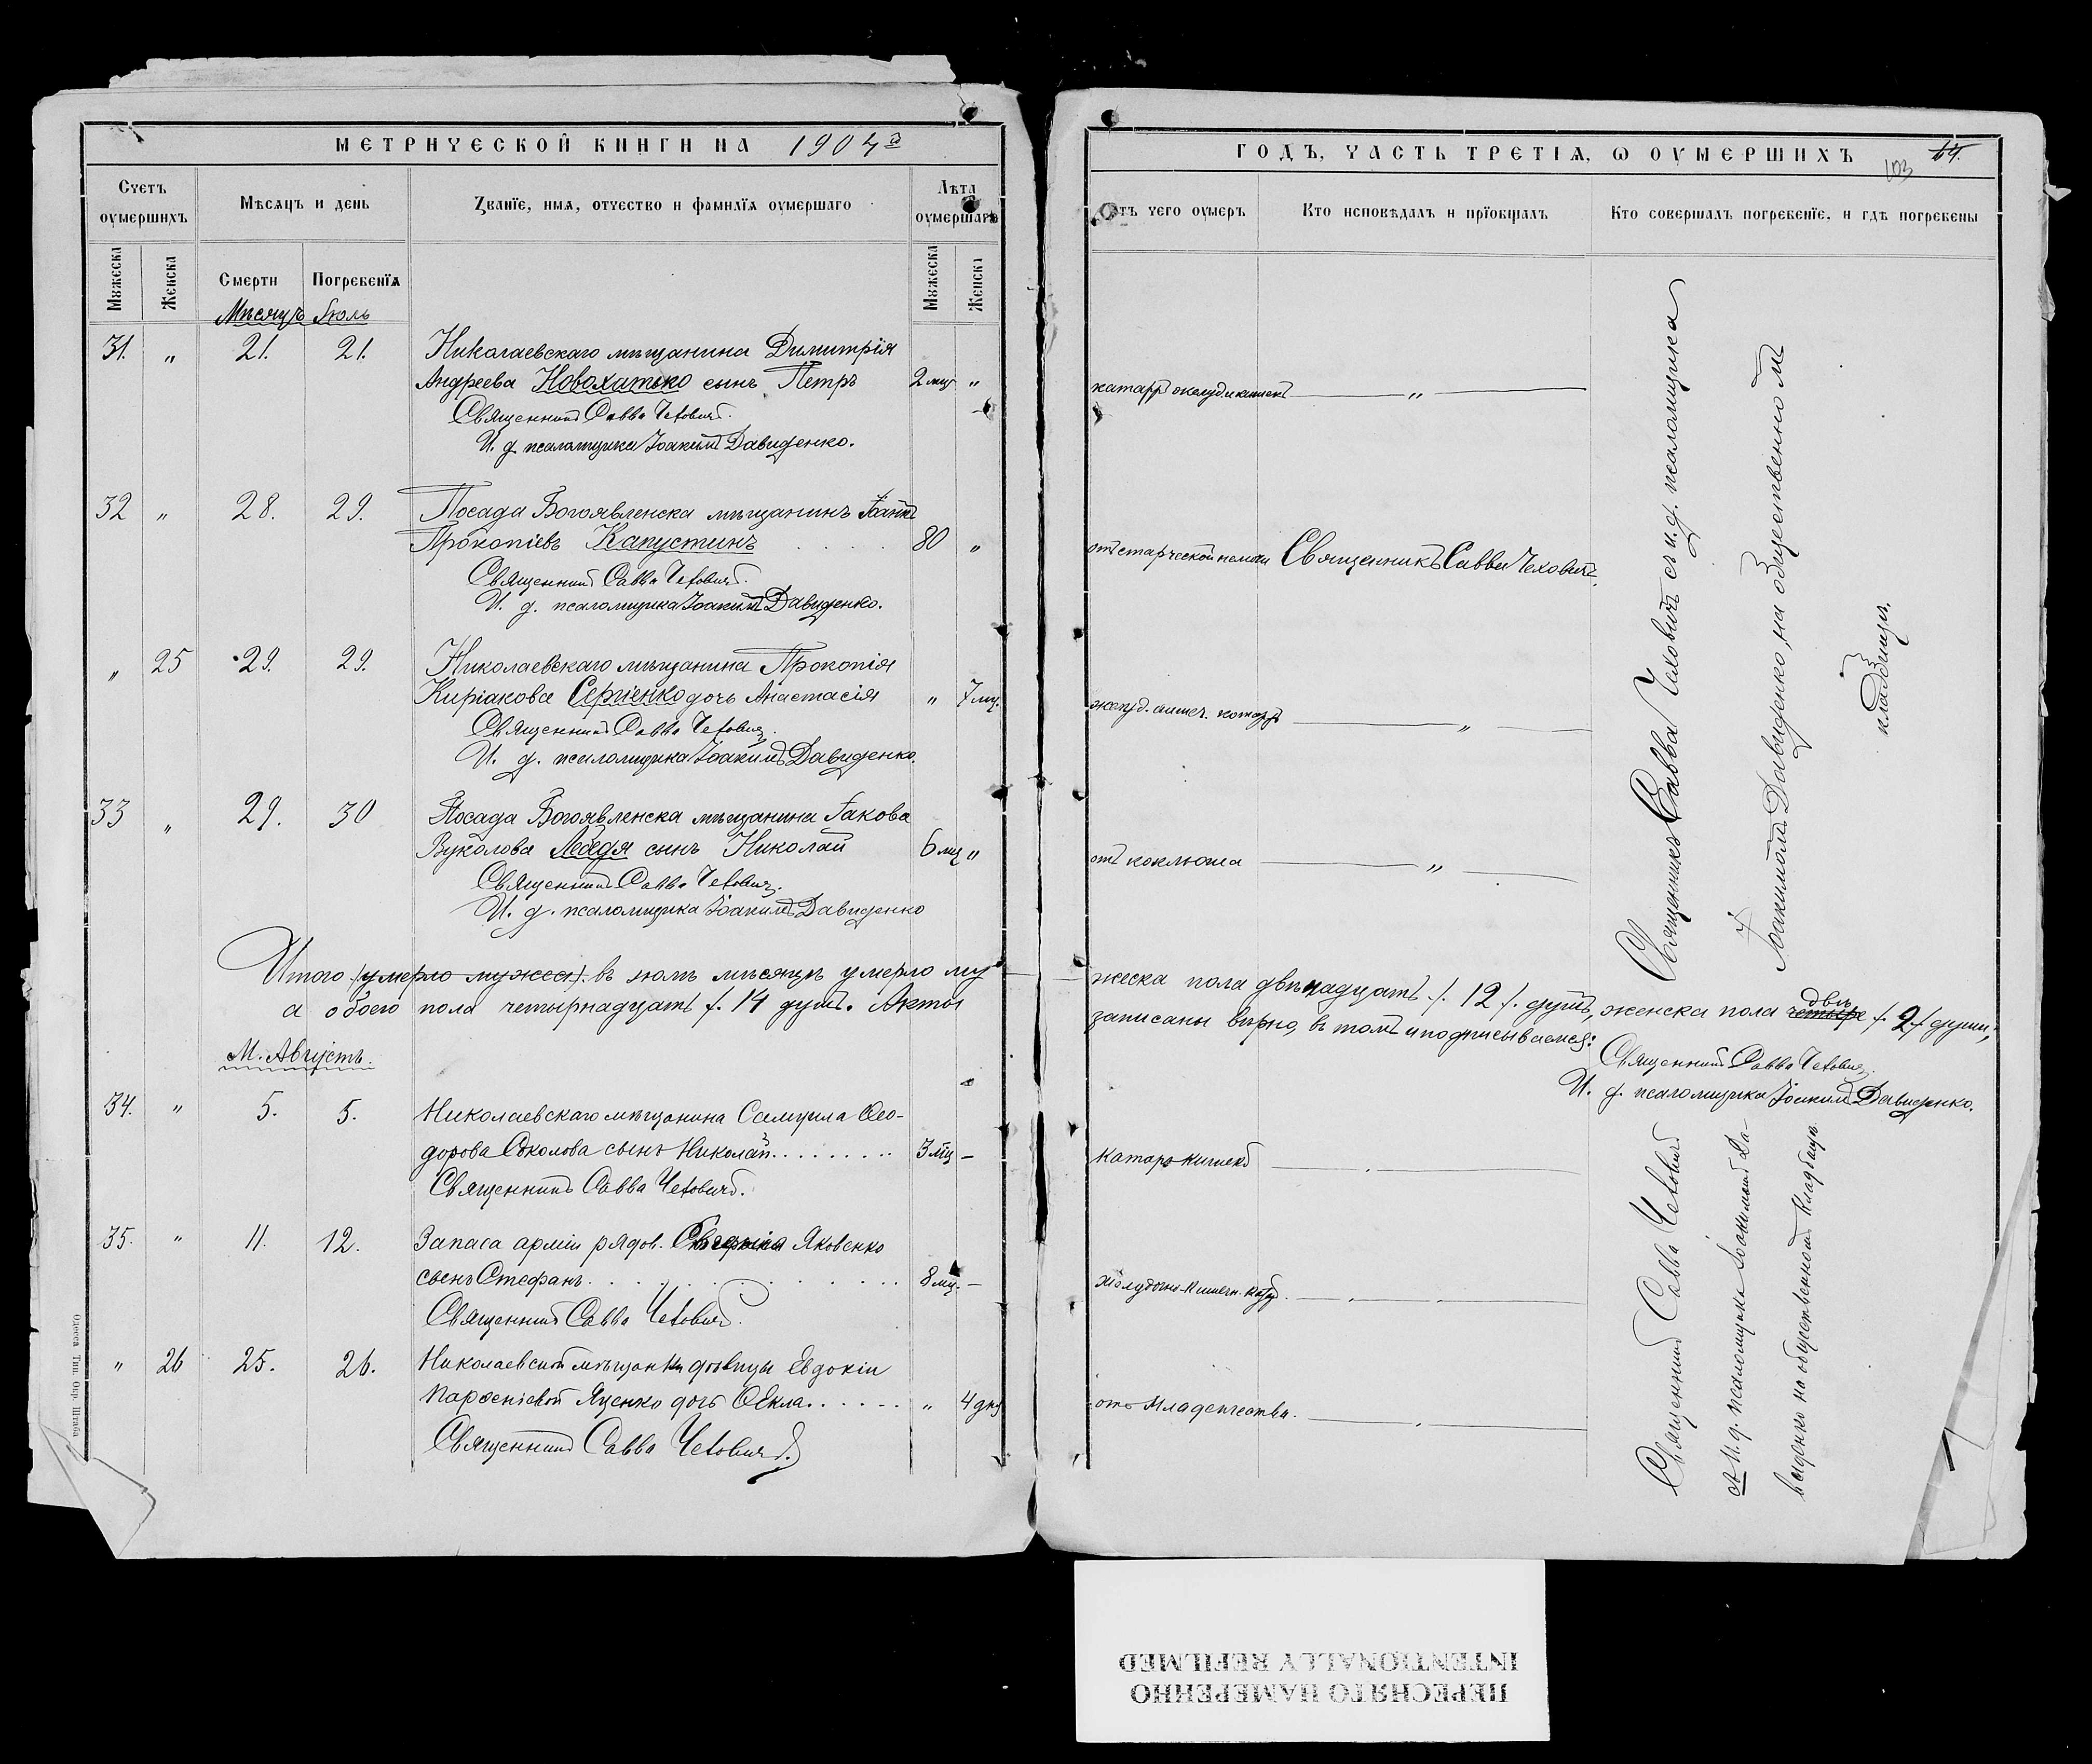 МЕТРИЧЕСКОЙ КНИГИ НА 1904 г
Счетъ оумершихъ
Мѣсяцъ и день
Званїе, имя, отчество и фамилїя оумершаго
Лѣта оумершаго
Мужеска
Женска
Смерти
Погребенїя
Мужеска
Женска
Мѣсяцъ Іюль
31. " 21. 21. Николаевскаго мѣщанина Димитрія
Андреева Новохатько сынъ Петръ 2 мц "
Священникъ Савва Чеховичъ.
И. д. псаломщика Іоакимъ Давиденко.
32 " 28. 29. Посада Богоявленска мѣщанинъ Іоаннъ
Прокопіевъ Капустинъ 80 "
Священникъ Савва Чеховичъ.
И. д. псаломщика Іоакимъ Давиденко.
" 25 29. 29. Николаевскаго мѣщанина Прокопія
Киріакова Сергіенко дочь Анастасія " 7 мц.
Священникъ Савва Чеховичъ.
И. д. псаломщика Іоакимъ Давиденко.
33 " 29. 30 Посада Богоявленска мѣщанина Іакова
Вуколова Лебедя сынъ Николай 6 мц "
Священникъ Савва Чеховичъ.
И. д. псаломщика Іоакимъ Давиденко
Итого (умерло мужеск). въ іюлѣ мѣсяцѣ умерло му
а обоего пола четырнадцать /. 14 душъ. Акты
М. Августъ.
34. " 5. 5. Николаевскаго мѣщанина Самуила Ѳео-
дорова Соколова сынъ Николай......... 3 мц –
Священникъ Савва Чеховичъ.
35. " 11. 12. Запаса арміи рядов. Яковенко
сынъ Стефанъ. 8 мц. –
Священникъ Савва Чеховичъ.
" 26 25. 26. Николаевской мѣщанки дѣвицы Евдокіи
Парѳеніевой Яценко дочь Ѳекла...... " 4 дня
Священникъ Савва Чеховичъ.
Одесса Тип. Окр. Штаба
ГОДЪ, ЧАСТЬ ТРЕТІЯ, Ѡ ОУМЕРШИХЪ
64.
103
Отъ чего оумеръ
Кто исповѣдалъ и прїобщалъ
Кто совершалъ погребенїе, и гдѣ погребены
катарръ желуд. и кишекъ "
отъ старческой немощи Священникъ Савва Чеховичъ.
желуд. кишеч. катарръ "
отъ коклюша "
Священникъ Савва Чеховичъ съ и. д. псаломщика
Іоакимомъ Давиденко, на общественномъ
кладбищѣ.
жеска пола двѣнадцать /. 12 /. душъ, женска пола четыре двѣ /. 2 /. души,
записаны вѣрно, въ томъ и подписываемся:
Священникъ Савва Чеховичъ.
И. д. псаломщика Іоакимъ Давиденко.
Катаръ кишекъ
Желудочно-кишечн. кат.
отъ младенчества.
Священникъ Савва Чеховичъ
съ И. д. псаломщика Іоакимомъ Да-
виденко на общественномъ кладбищѣ.
ПЕРЕСНЯТО НАМЕРЕННО
INTENTIONALLY REFILMED